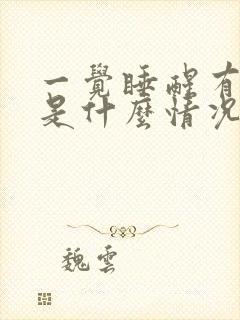 一覺睡醒有
是什麼情況
魏雲